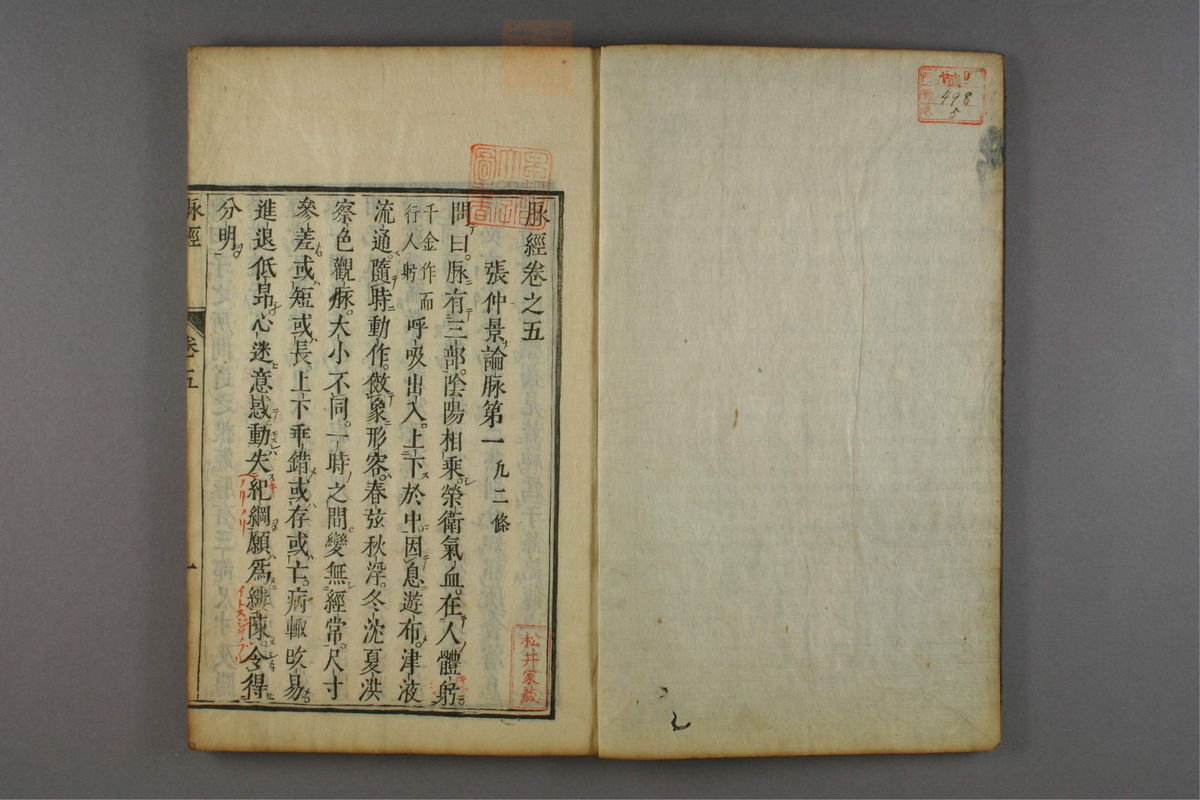 498
5
脉經卷之五
張仲景論脉第一 九二條
問曰脉有三部陰陽相乘榮衛氣血在人體躬
千金作而行人躬
呼吸出入上下於中因息遊布津液
流通隨時動作傚象形容春弦秋浮冬沈夏洪
察色觀脉大小不同一時之間變無經常尺寸
參差或短或長上下乖錯或存或亡病輙攺易
進退低昂心迷意惑動失紀綱願爲縷陳令得
分明
脉經
卷五
一
松井家藏